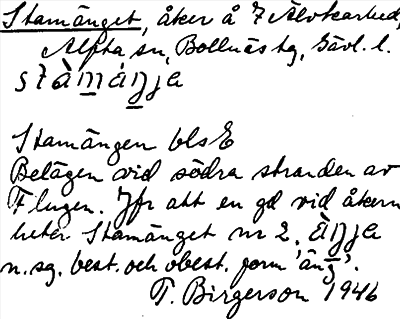 Stamänget, åker å 7 Älvkarhed,
Alfta sn, Bollnäs tg, Gävl. l.
stàmáŋ̱ja
Stamängen bls E
Belägen vid södra stranden av
Flugen. Jfr att en gd vid åkern
heter Stamänget nr 2. àŋ̱ja
n. sg. best. och obest. form 'äng'.
T. Birgerson 1946